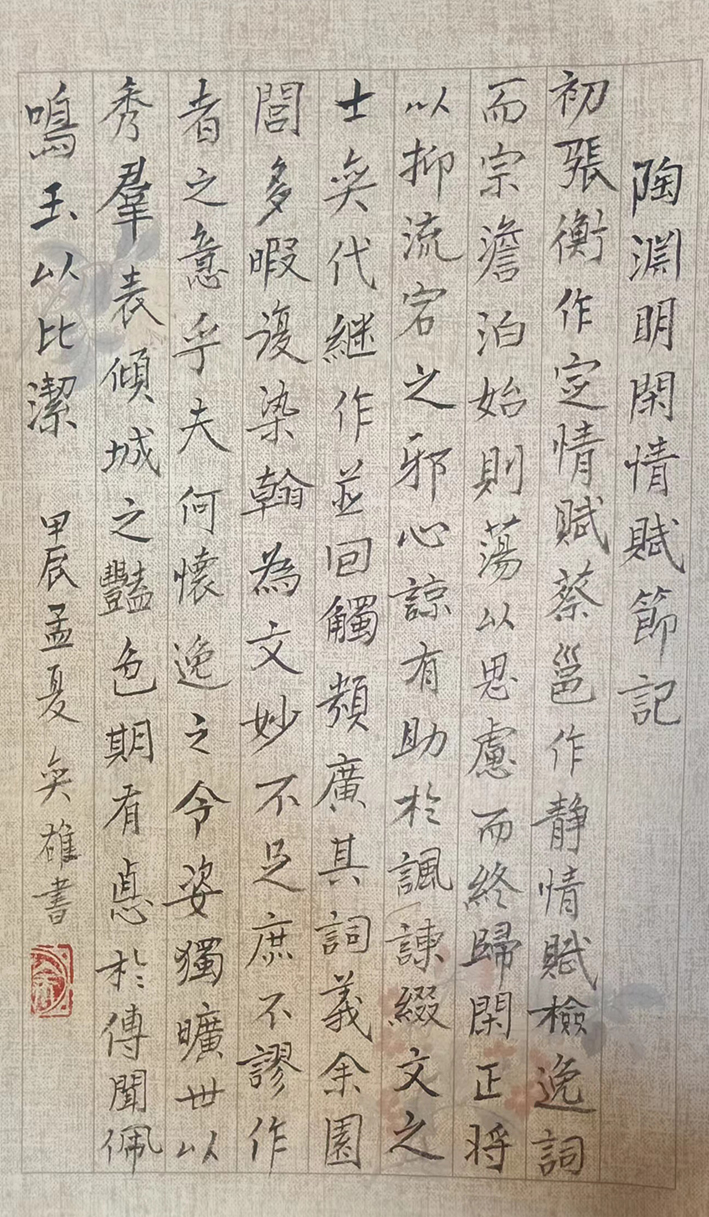 陶淵明閑情賦節記
初張衡作定情賦蔡邕作靜情賦檢逸詞
而宗澹泊始則蕩以思慮而終歸閑正将
以抑流宕之邪心諒有助於諷諫綴文之
士奕代継作並回觸類廣其詞義余園
閭多暇復染翰為文妙不足庶不謬作
者之意乎夫何懷逸之令姿獨曠世以
秀羣表傾城之豔色期有悳於傳聞佩
鳴玉以比潔
甲辰孟夏奕雄書